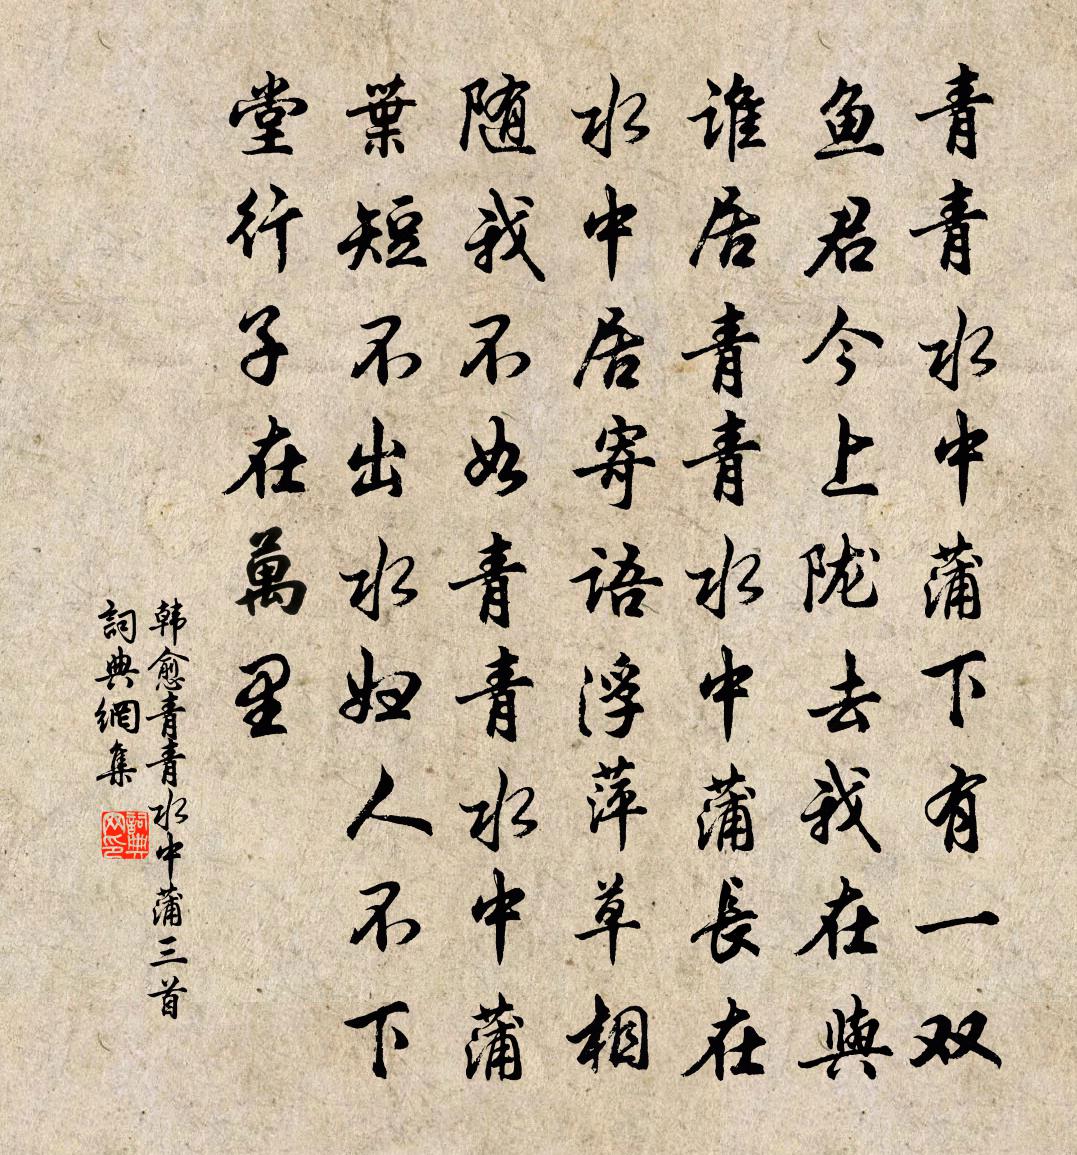 青青水中蒲下有一双
鱼君今上陇去我在與
谁居青青水中蒲長在
水中居寄语浮萍草相
随我不如青青水中蒲
葉短不出水妇人不下
堂行子在萬里
韩愈青青水中蒲三首
詞典網集
詞典网印